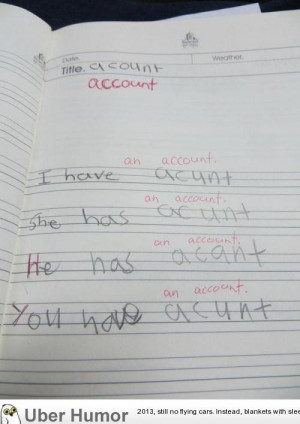 Date. Weather.
Title. acount
account
an account.
I have acunt
an account.
She has acunt
an account.
He has acant
an account.
You have acunt
Uber Humor
2013, still no flying cars. Instead, blankets with slee